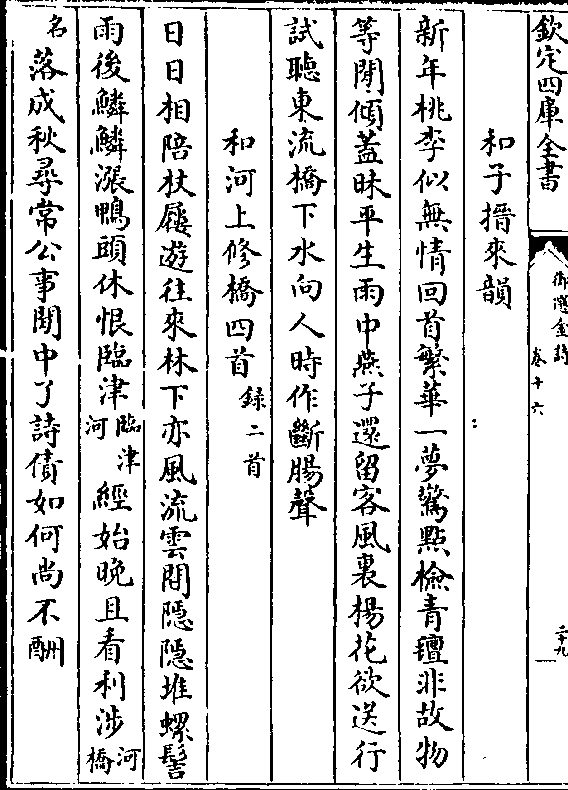 欽定四庫全書
御選金詩
卷十六
二十九
和子搢來韻
新年桃李似無情回首繁華一夢驚點檢青氊非故物
等閒傾蓋昧平生雨中燕子還留客風裏楊花欲送行
試聽東流橋下水向人時作斷腸聲
和河上修橋四首錄二首
日日相陪杖屨遊往來林下亦風流雲間隠隠堆螺髻
雨後鱗鱗漲鴨頭休恨臨津臨津河經始晚且看利涉河橋
名落成秋尋常公事閒中了詩債如何尚不酬